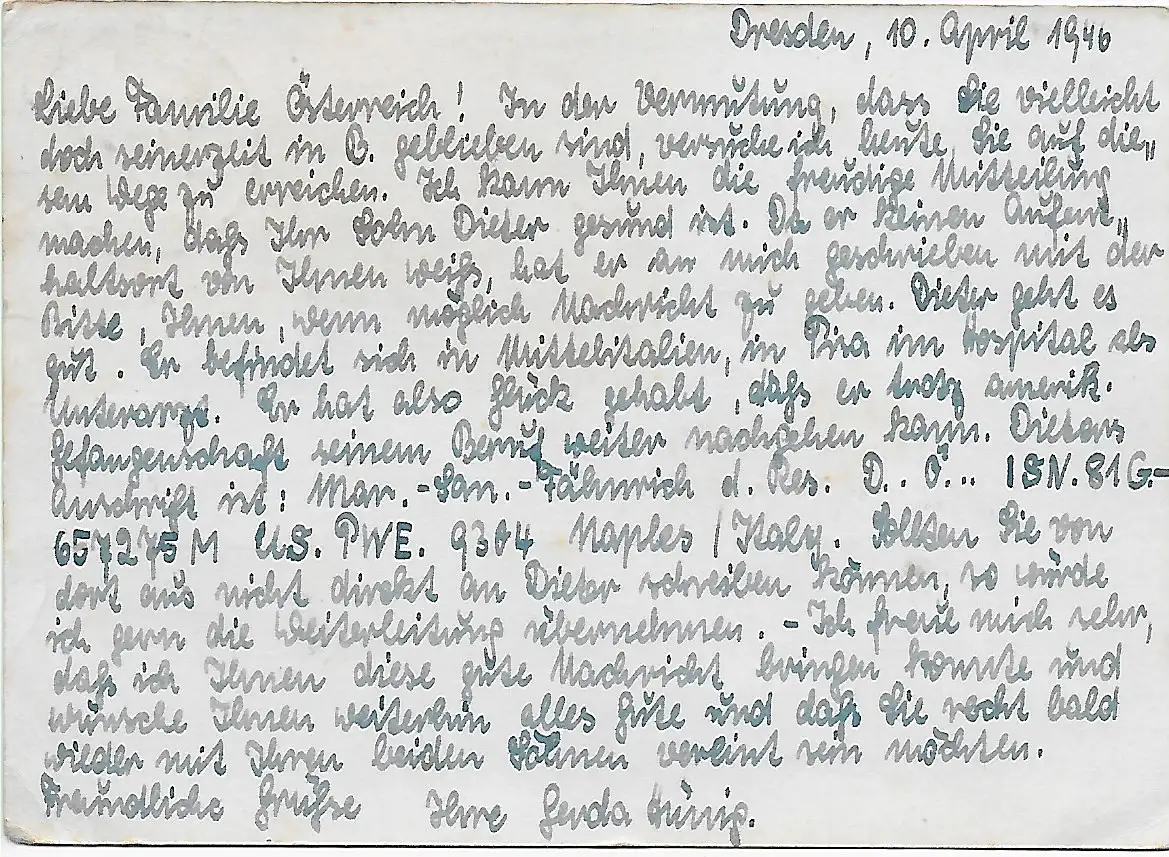 Dresden, 10. April 1946
Liebe Familie Österreich! In der Vermutung, dass Sie vielleicht
doch seinerzeit in B. geblieben sind, versuche ich heute, Sie auf die„
sem Wege zu erreichen. Ich kann Ihnen die freudige Mitteilung
machen, daß Ihr Sohn Dieter gesund ist. Da er keinen Aufent„
haltsort von Ihnen weiß, hat er an mich geschrieben mit der
Bitte, Ihnen, wenn möglich Nachricht zu geben. Dieter geht es
gut. Er befindet sich in Mittelitalien, in Pisa im Hospital als
Unterarzt. Er hat also Glück gehabt, daß er trotz amerik.
Gefangenschaft seinem Beruf weiter nachgehen kann. Dieters
Anschrift ist: Mar.-San.-Fähnrich d. Res. D.. Ö... ISN. 81G-
657275M U.S. PWE. 9304 Naples / Italy. Sollten Sie von
dort aus nicht direkt an Dieter schreiben können, so würde
ich gern die Weiterleitung übernehmen. - Ich freue mich sehr,
daß ich Ihnen diese gute Nachricht bringen konnte und
wünsche Ihnen weiterhin alles Gute und daß Sie recht bald
wieder mit Ihren beiden Söhnen vereint sein möchten.
Freundliche Grüße Ihre Gerda Hünig.